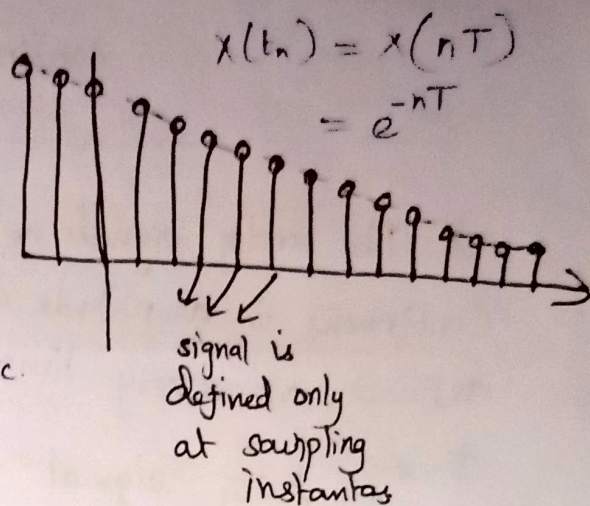 x(tn) = x(nT)
= e^-nT
c.
signal is
defined only
at sampling
instantas